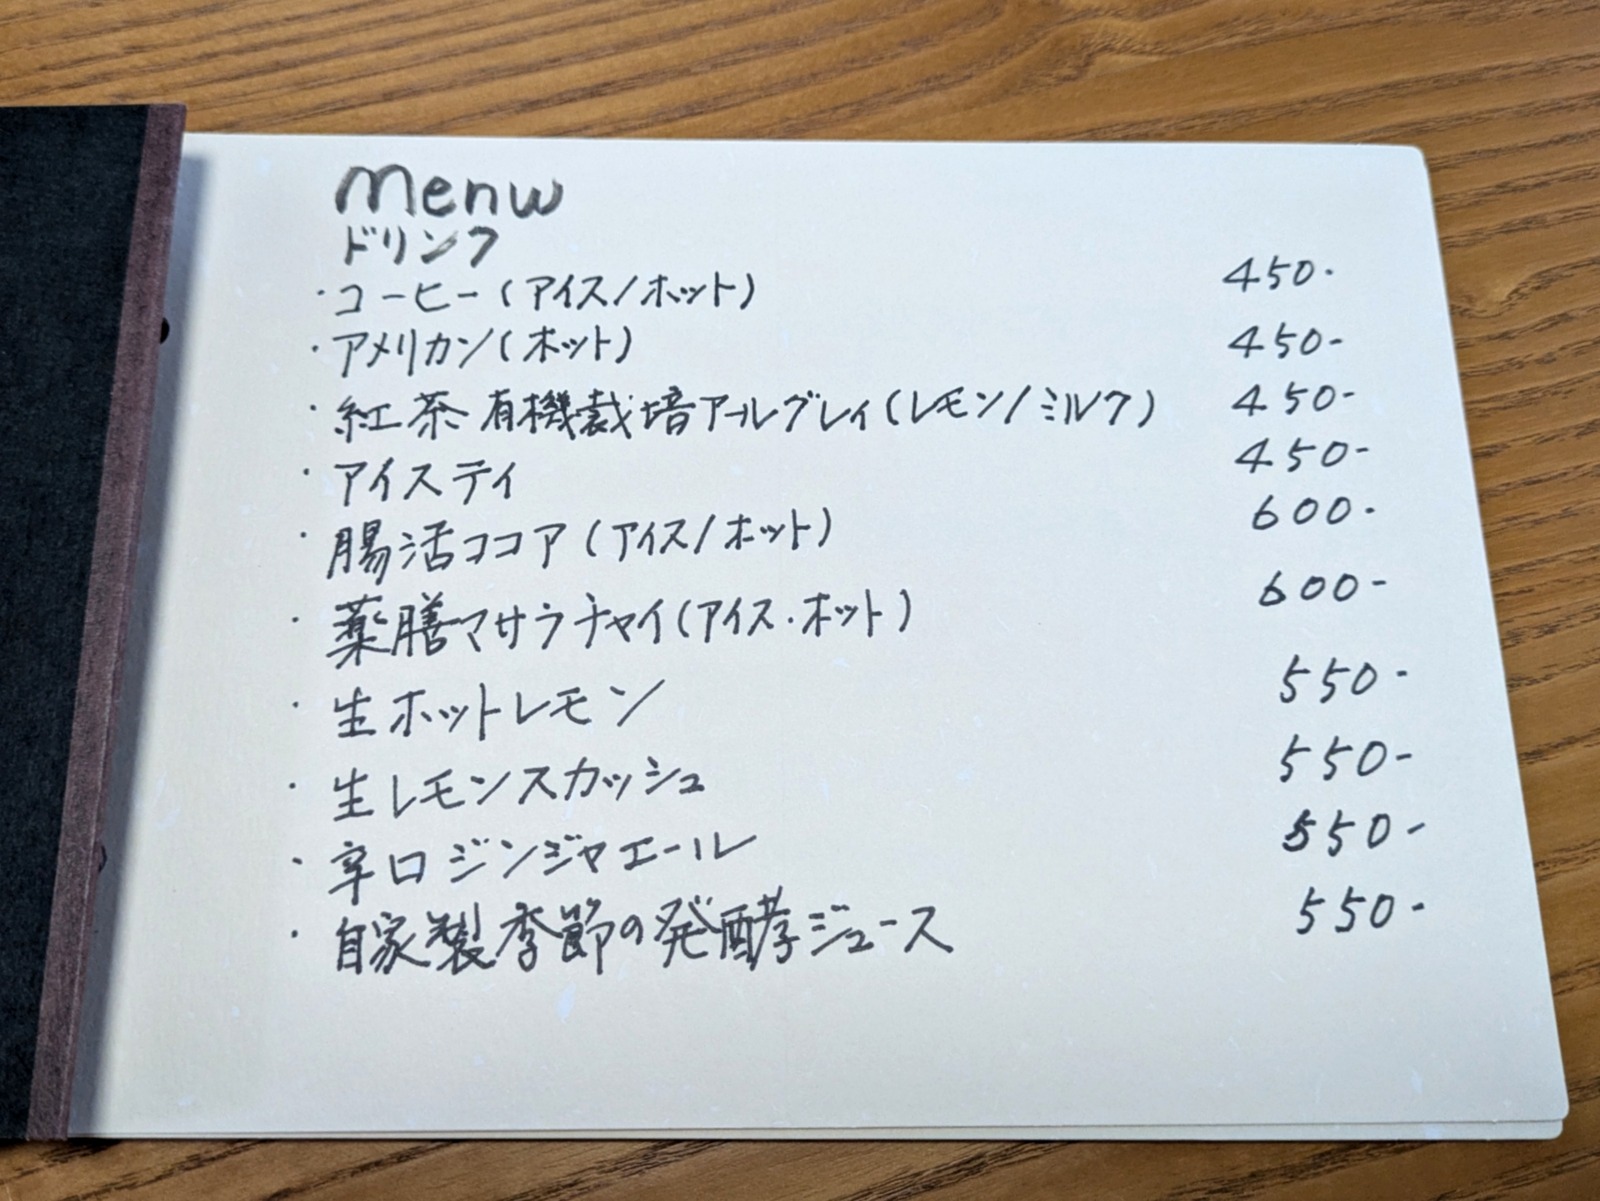 Menu
ドリンク
・コーヒー(アイス/ホット) 450-
・アメリカン(ホット) 450-
・紅茶 有機栽培アールグレィ(レモン/ミルク) 450-
・アイスティ 450-
・腸活ココア(アイス/ホット) 600-
・薬膳マサラチャイ(アイス・ホット) 600-
・生ホットレモン 550-
・生レモンスカッシュ 550-
・辛口ジンジャエール 550-
・自家製季節の発酵ジュース 550-